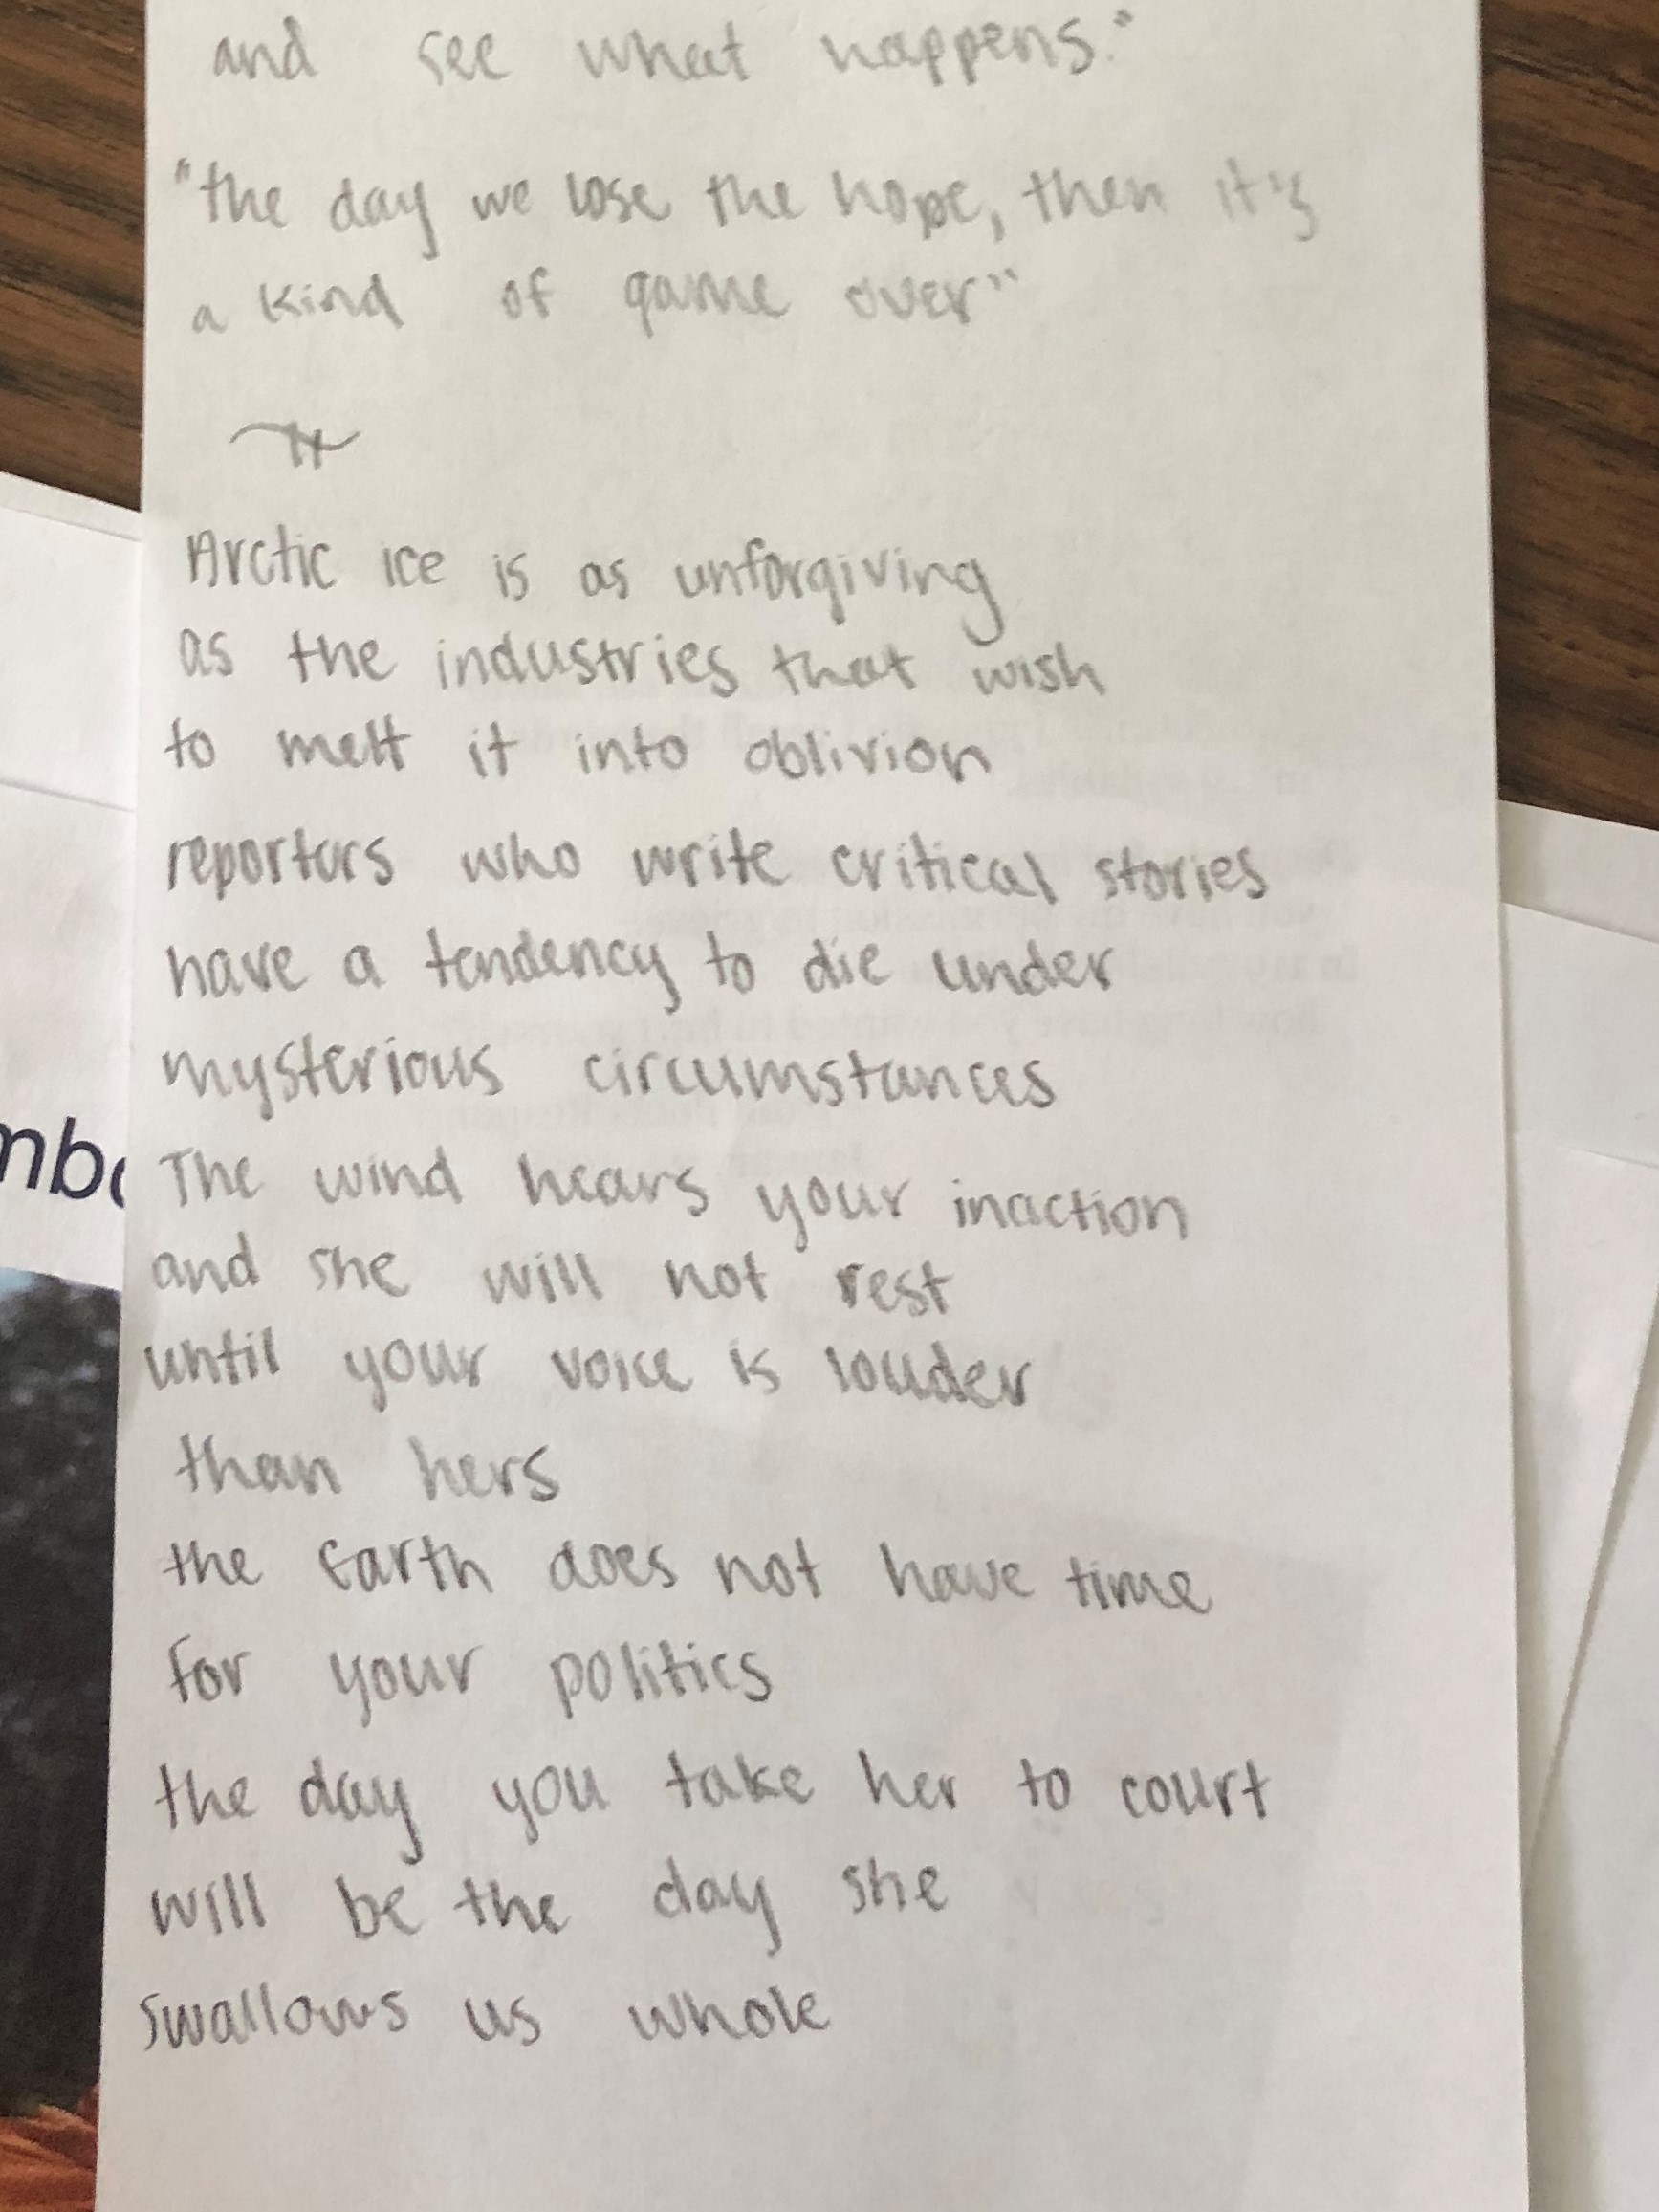 and see what happens."
"the day we lose the hope, then it's
a kind of game over"
Arctic ice is as unforgiving
as the industries that wish
to melt it into oblivion
reporters who write critical stories
have a tendency to die under
mysterious circumstances
The wind hears your inaction
and she will not rest
until your voice is louder
than hers
the Earth does not have time
for your politics
the day you take her to court
will be the day she
swallows us whole